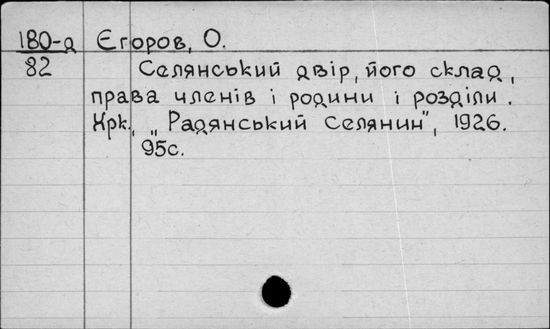 180-д Єгоров, О.
82 Селянський двір, його склад,
права членів і родини і розділи.
Хрк., „Радянський Селянин", 1926.
95с.